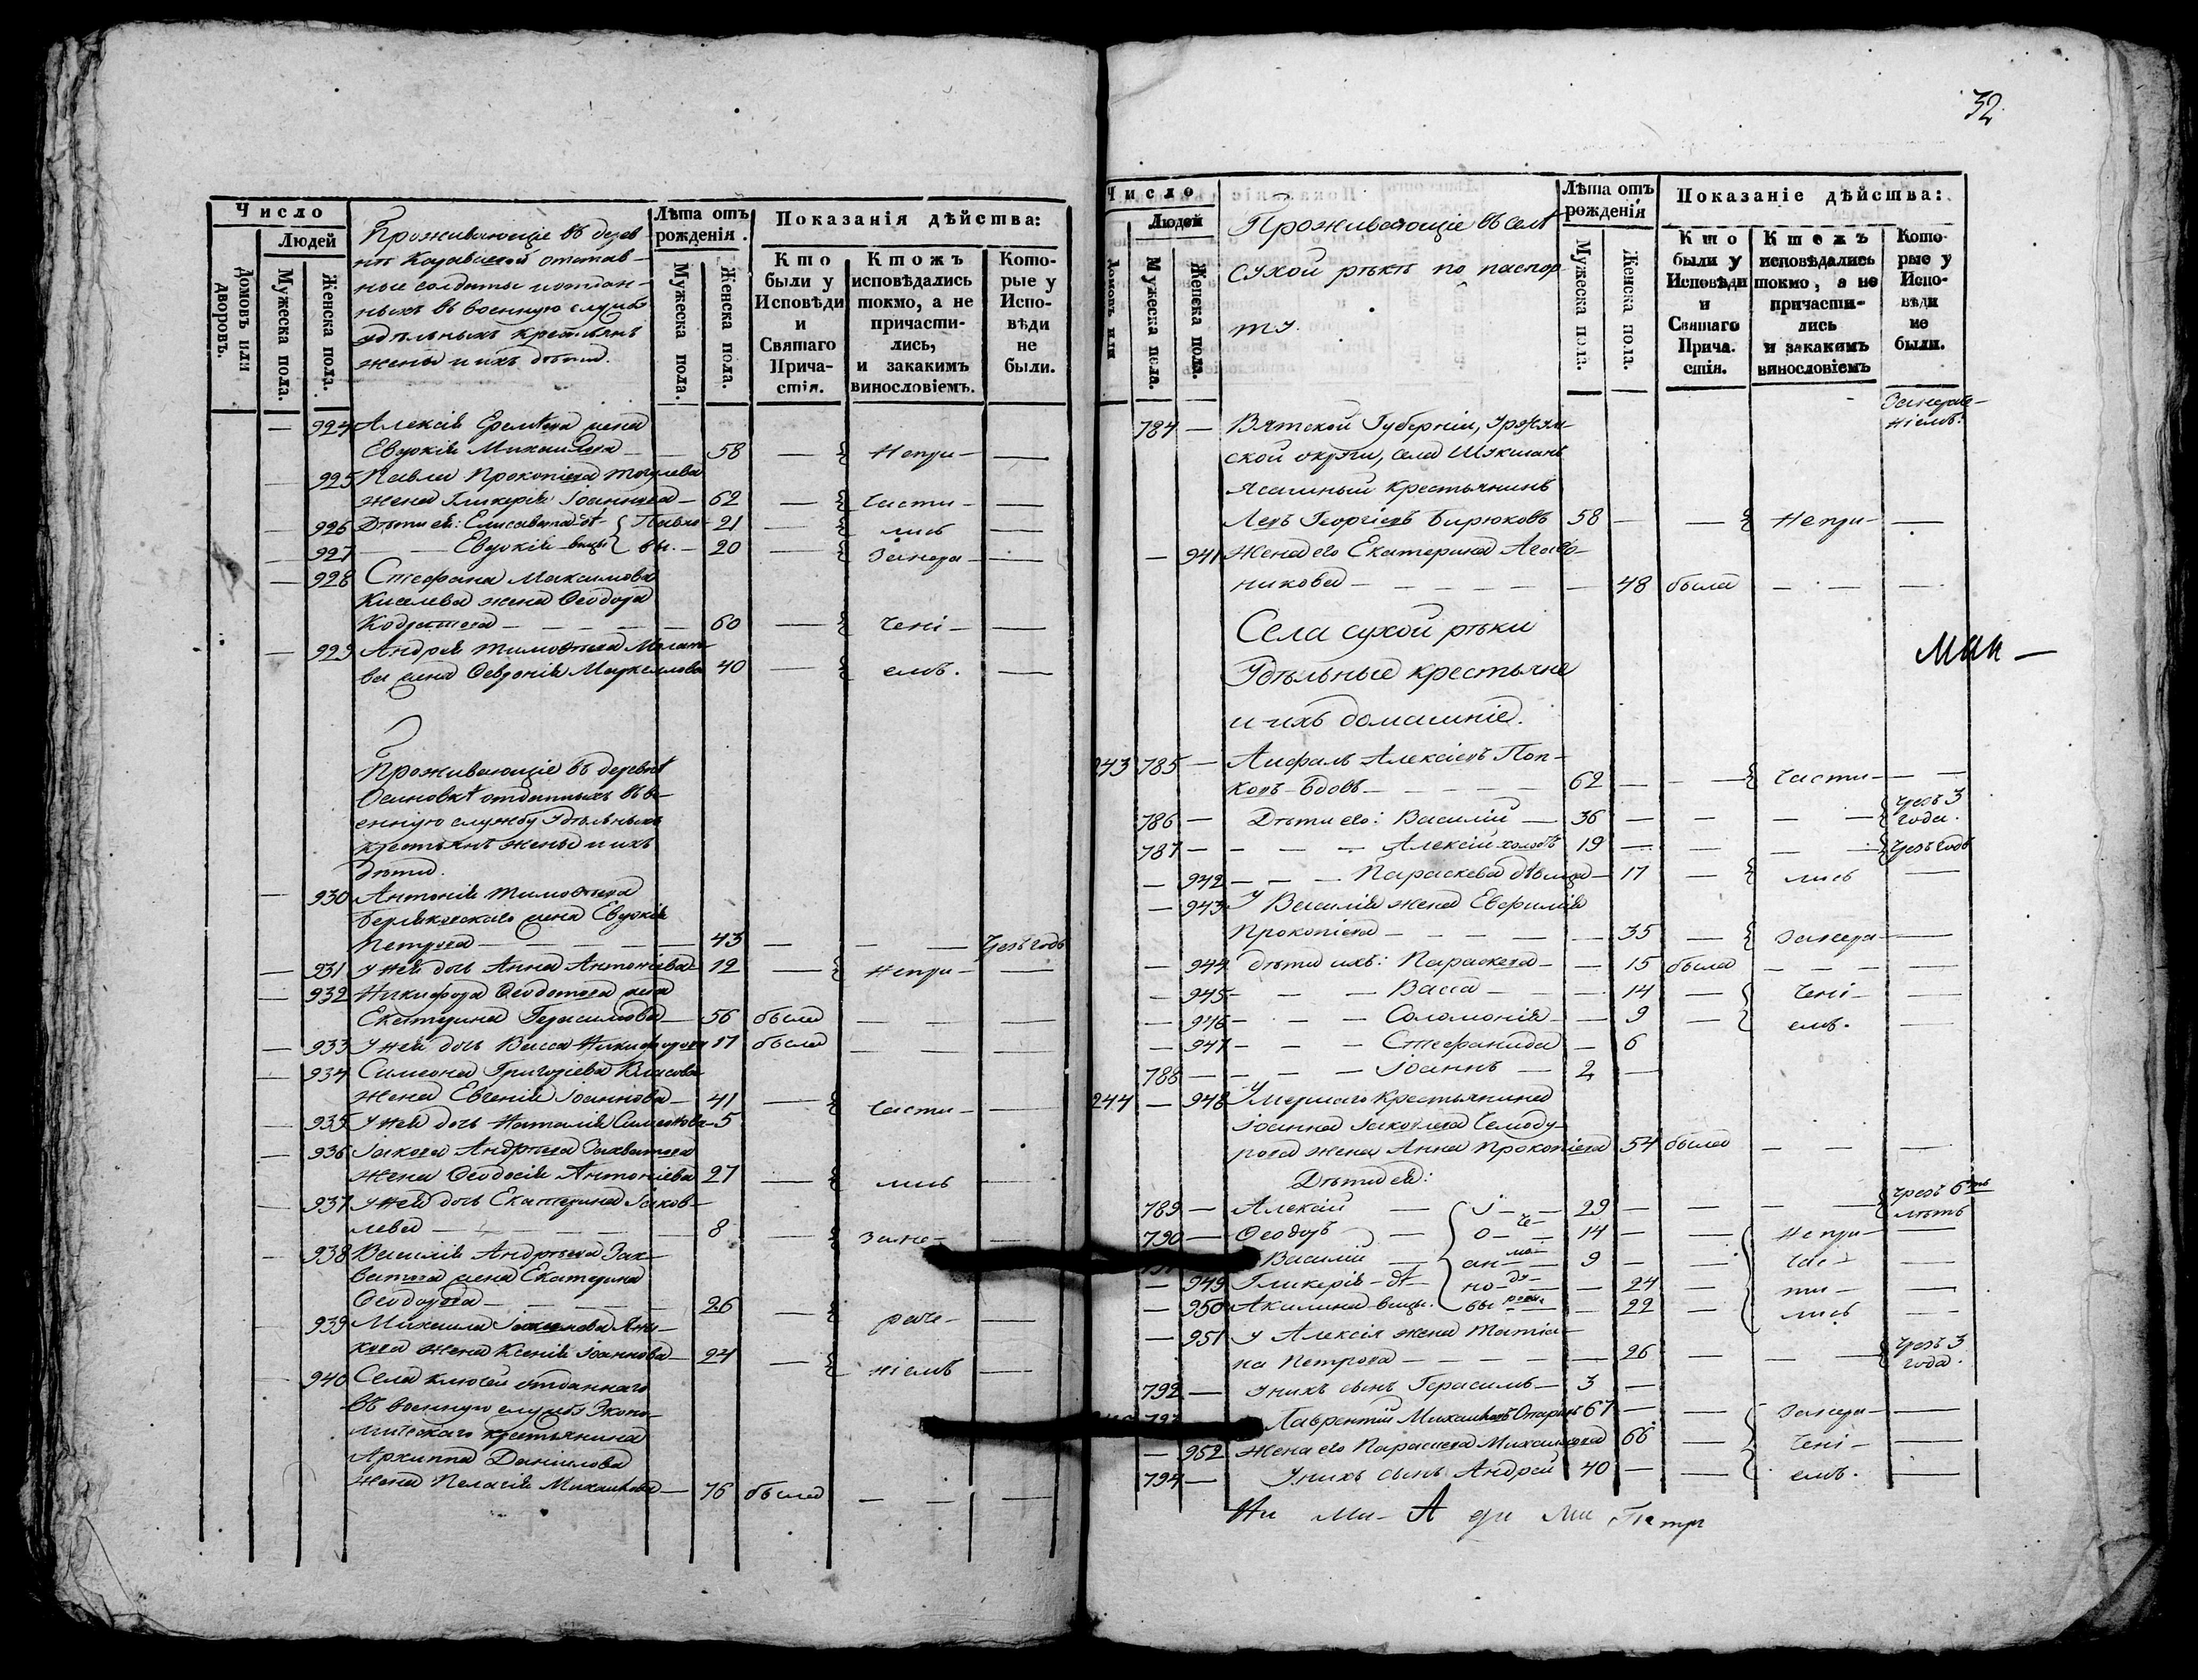 Число
Людей
Домовъ или дворовъ.
Мужеска пола.
Женска пола.
Проживающіе въ дерев-
нѣ отстав-
ные солдаты и отдан-
ныхъ въ военную службу
удѣльныхъ крестьянъ
жены и ихъ дѣти.
Лѣта отъ рожденія.
Мужеска пола.
Женска пола.
Показанія дѣйства:
Кто были у Исповѣди и Святаго Причастія.
Ктожъ исповѣдались токмо, а не причастились, и закакимъ винословіемъ.
Которые у Исповѣди не были.
— 924 Алексія Еремѣева жена
Евдокія Михайлова — 58 — { Непри- —
— 925 Павла Прокопіева
жена Гликерія Іоаннова — 62 — { части- —
— 926 Дѣти ея: Елисавета дѣ- { Павло- 21 — { лись —
— 927 — Евдокія вицы { вы. — 20 — { Занера- —
— 928 Стефана Максимова
Киселева жена Ѳеодора
— 60 — { чені- —
— 929 Андрея Тимоѳеева
жена Ѳевронія Маркеллова 40 — { емъ. —
Проживающіе въ деревнѣ
Осиновкѣ отданныхъ въ во-
енную службу удѣльныхъ
крестьянъ жены и ихъ
дѣти.
— 930 Антонія Тимоѳеева
жена Евдокія
Петрова — 43 — — — Чрезъ годъ
— 931 У ней дочь Анна Антоніева 12 — { Непри- —
— 932 Никифора Ѳеодотова жена
Екатерина Герасимова — 56 была — — —
— 933 У ней дочь Васса Никифорова 17 была — — —
— 934 Симеона Григоріева Власова
жена Евгенія Іоаннова — 41 — { части- —
— 935 У ней дочь Наталія Симеонова — 5
— 936 Іакова Андреева Захватова
жена Ѳеодосія Антоніева 27 — { лись —
— 937 У ней дочь Екатерина Іаков-
лева — 8 — { Зане- —
— 938 Василія Андреева Зах-
ватова жена Екатерина
Ѳеодорова — 26 — { раче- —
— 939 Михаила
жена Ксенія Іоаннова — 24 — { ніемъ —
— 940 Села Ключей отданнаго
въ военную службу Эконо-
мическаго крестьянина
Архиппа Даніилова
жена Пелагія Михайлова — 76 была — — —
32.
Число
Людей
Домовъ или
Мужеска пола.
Женска пола.
Проживающіе въ селѣ
Сухой рѣкѣ по паспор-
ту.
Лѣта отъ рожденія
Мужеска пола.
Женска пола.
Показаніе дѣйства:
Кто были у Исповѣди и Святаго Причастія.
Ктожъ исповѣдались токмо, а не причастились и закакимъ винословіемъ
Которые у Исповѣди не были.
Занераче-
ніемъ:
784 — Вятской Губерніи, Уржум-
ской округи, села
Ясашный крестьянинъ
Левъ Георгіевъ Бирюковъ 58 — — { Непри- —
— 941 Жена его Екатерина Агаѳо-
никова — 48 была — — —
Села Сухой рѣки
Удѣльные крестьяне
и ихъ домашніе.
мин —
243 785 — Алексіевъ Поп-
ковъ вдовъ — 62 — — { Части- — —
786 — Дѣти его: Василій — 36 — — — { Чрезъ 3 года.
787 — — — Алексій холостъ 19 — — — { Чрезъ годъ
— 942 — — Параскева дѣвица — 17 — { лись —
— 943 У Василія жена Евфимія
Прокопіева — 35 — { Занера- —
— 944 Дѣти ихъ: Параскева — 15 была — — —
— 945 — — — Васса — 14 — { чені- —
— 946 — — — Соломонія — 9 — { емъ. —
— 947 — — — Стефанида — 6
788 — — — — Іоаннъ — 2 —
244 — 948 Умершаго крестьянина
Іоанна Іаковлева Чемоду-
рова жена Анна Прокопіева 54 была — — —
Дѣти ея:
789 — Алексій — { І- — 29 — — — { Чрезъ 6ть лѣтъ
790 — Ѳеодоръ — { о- че- 14 — — { Непри- —
Василій — { ан- мо- 9 — — час- —
— 949 Гликерія — дѣ- { но- ду- — 24 — ти- —
— 950 Акилина вицы. { вы ровы — 22 — лись —
— 951 У Алексія жена Татіа-
на Петрова — 26 — — { Чрезъ 3 года.
792 — У нихъ сынъ Герасимъ — 3 —
Лаврентій Михайловъ 67 — — { Занера- —
— 952 Жена его Параскева Михайлова 66 — чені- —
794 — У нихъ сынъ Андрей 40 — — емъ. —